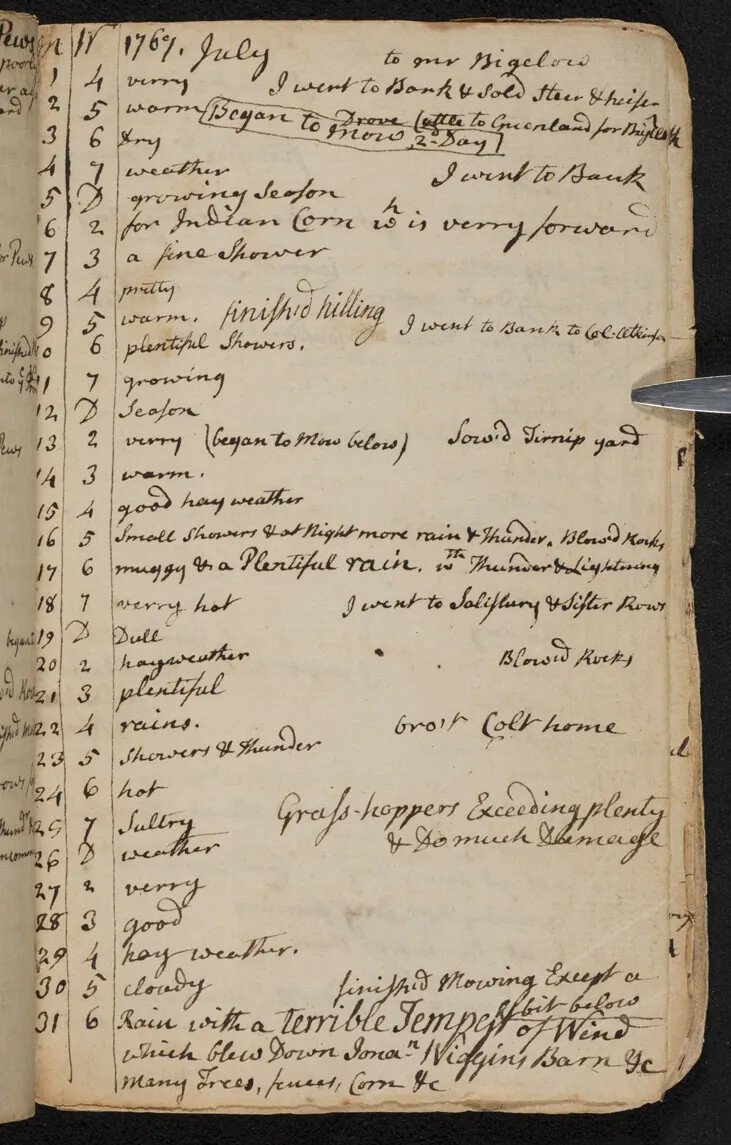 m W 1767. July
to mr Bigelow
1 4 verry I went to Bank & Sold Steer & heifer
2 5 warm Began to Drove Cattle to Greenland for Bigelow
3 6 dry mow 2d Day
4 7 weather I went to Bank
5 D growing Season
6 2 for Indian Corn wh is verry forward
7 3 a fine Shower
8 4 pritty
9 5 warm. finish'd hilling I went to Bank to Col. Atkinson
10 6 plentiful Showers.
11 7 growing
12 D Season
13 2 verry (began to Mow below) Sow'd Tirnip yard
14 3 warm.
15 4 good hay weather
16 5 Small Showers & at Night more rain & Thunder. Blow'd Rocks
17 6 muggy & a Plentiful rain. wth Thunder & Lightning
18 7 verry hot I went to Salisbury & Sister Rows
19 D Dull
20 2 hay weather Blow'd Rocks
21 3 plentiful
22 4 rains. bro't Colt home
23 5 Showers & Thunder
24 6 hot
25 7 Sultry Grass-hoppers Exceeding plenty
26 D weather & Do much Damage
27 2 verry
28 3 good
29 4 hay weather.
30 5 cloudy finish'd Mowing Except a
bit below
31 6 Rain with a terrible Tempest of Wind
which blew Down Jonan Wiggins Barn &c
many Trees, fences, Corn &c